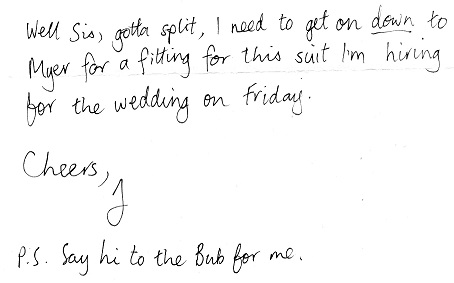 Well Sis, gotta split, I need to get on down to
Myer for a fitting for this suit I'm hiring
for the wedding on Friday.
Cheers,
J
P.S. Say hi to the Bub for me.